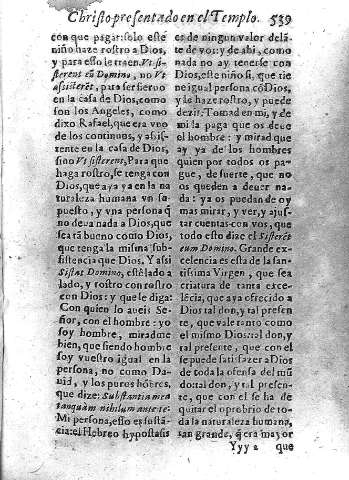 Christo presentado en el Templo. 539
con que pagar: solo este
niño haze rostro a Dios,
y para esso le traen, Vt si-
sterent eū Domino, no Vt
assisterēt, para ser siervo
en la casa de Dios, como
son los Angeles, como
dixo Rafael, que era vno
de los continuos, y assis-
tente en la casa de Dios,
sino Vt sisterent, Para que
haga rostro, se tenga con
Dios, que aya ya en la na
turaleza humana vn su-
puesto, y vna persona q̄
no deva nada a Dios, que
sea tā bueno como Dios,
que tenga la misma sub-
sistencia que Dios. Y assi
Sistat Domino, estè lado a
lado, y rostro con rostro
con Dios: y que le diga:
Con quien lo aueis Se-
ñor, con el hombre: yo
soy hombre, miradme
bien, que siendo hombre
soy vuestro igual en la
persona, no como Da-
uid, y los puros hōbres,
que dize: Substantia mea
tanquàm nihilum ante te:
Mi persona, esso es sustā-
cia: el Hebreo hypostasis
es de ningun valor delā-
te de vos: y de ahi, como
nada no ay tenerse con
Dios, este niño si, que tie
ne igual persona cō Dios,
y le haze rostro, y puede
dezir: Tomad en mi, y de
mi la paga que os deue
el hombre: y mirad que
ay ya de los hombres
quien por todos os pa-
gue, de suerte, que no
os queden a deuer na-
da: ya os puedan de oy
mas mirar, y ver, y ajus-
tar cuentas con vos, que
todo esto dize el Sisterēt
eum Domino. Grande ex-
celencia es esta de la san-
tissima Virgen, que sea
criatura de tanta exce-
lēcia, que aya ofrecido a
Dios tal don, y tal presen
te, que vale tanto como
el mismo Dios: tal don, y
tal presente, que con el
se puede satisfazer a Dios
de toda la ofensa del mū
do: tal don, y tal presen-
te, que con el se ha de
quitar el oprobrio de to-
da la naturaleza humana,
tan grande, q̄ era mayor
Yyy 2 que